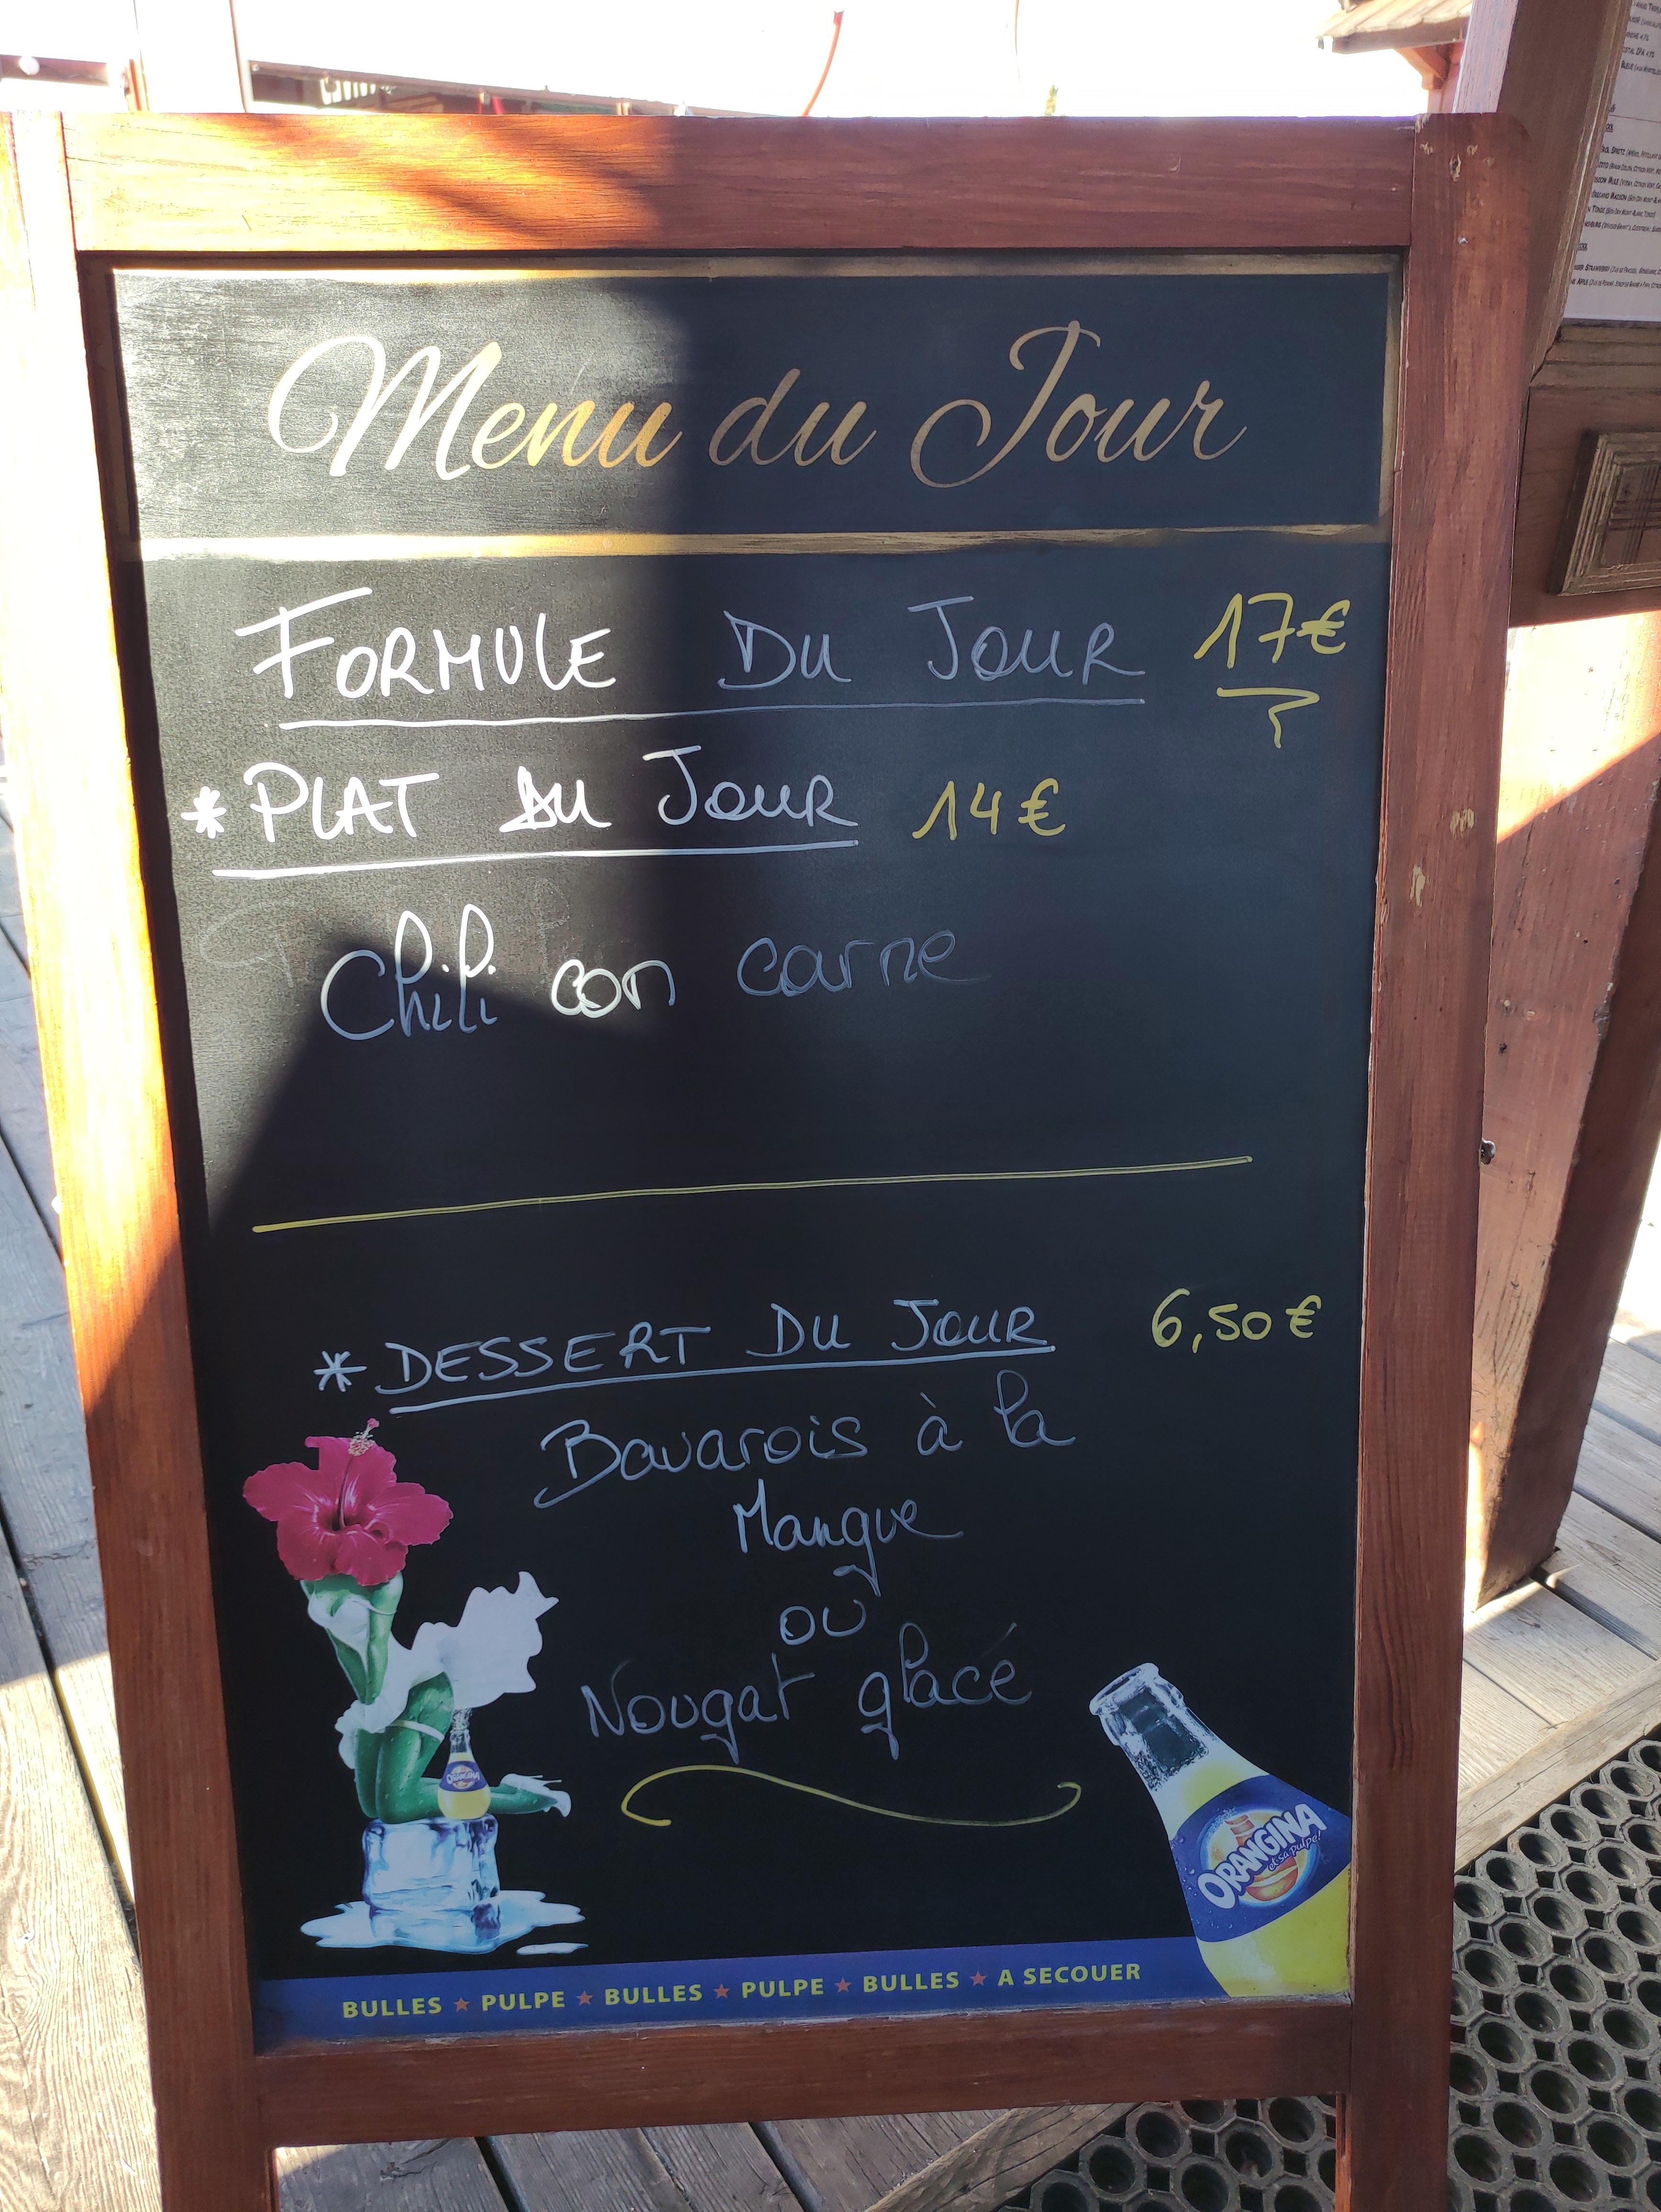 Menu du Jour
FORMULE DU JOUR 17€
* PLAT DU JOUR 14€
Chili con carne
* DESSERT DU JOUR 6,50€
Bavarois à la
Mangue
ou
Nougat glacé
ORANGINA
ORANGINA
et sa pulpe!
BULLES ★ PULPE ★ BULLES ★ PULPE ★ BULLES ★ A SECOUER